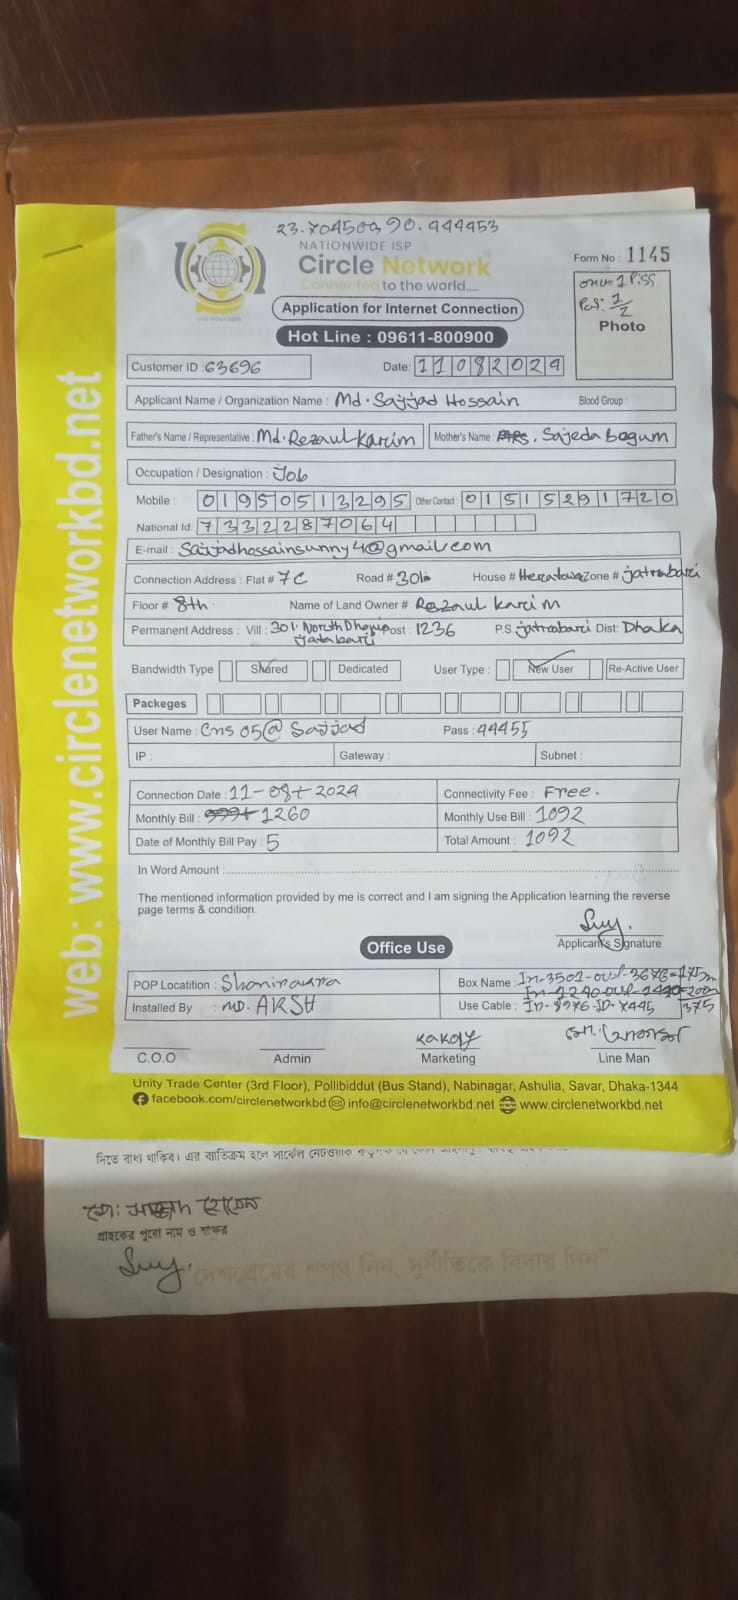 23.7045009 90.444453
NATIONWIDE ISP
Circle Network
Connected to the world.....
Form No : 1145
onu= 1 Piss
Pas: 2/2
Photo
Application for Internet Connection
Hot Line : 09611-800900
Customer ID : 63696
Date: 11082024
Applicant Name / Organization Name : Md. Sajjad Hossain
Blood Group :
Father's Name / Representative : Md. Rezaul Karim
Mother's Name : Sajeda Begum
Occupation / Designation : Job
Mobile : 01950513295 Other Contact : 01515291720
National Id: 7332287064
E-mail : Sajjadhossainsunny4@gmail.com
Connection Address : Flat # 7C Road # 301 House # Zone # jatrabari
Floor # 8th Name of Land Owner # Rezaul Karim
Permanent Address : Vill : 301 North Post : 1236 P.S jatrabari Dist: Dhaka
Bandwidth Type Shared Dedicated User Type : New User Re-Active User
Packeges
User Name : Cns 05@ Sajjad Pass : 44455
IP : Gateway : Subnet :
Connection Date : 11-08-2024 Connectivity Fee : Free.
Monthly Bill : 1260 Monthly Use Bill : 1092
Date of Monthly Bill Pay : 5 Total Amount : 1092
In Word Amount :
The mentioned information provided by me is correct and I am signing the Application learning the reverse
page terms & condition.
Suny.
Applicant's Signature
Office Use
POP Locatition : Shonirakhra
Box Name : In-3501-out-3676=175m
Installed By : MD. ARSH
Use Cable :
375
Kakoly
C.O.O Admin Marketing Line Man
Unity Trade Center (3rd Floor), Pollibiddut (Bus Stand), Nabinagar, Ashulia, Savar, Dhaka-1344
facebook.com/circlenetworkbd info@circlenetworkbd.net www.circlenetworkbd.net
web: www.circlenetworkbd.net
দিতে বাধ্য থাকিব। এর ব্যতিক্রম হলে সার্কেল নেটওয়ার্ক
মো: সাজ্জাদ হোসেন
গ্রাহকের পুরো নাম ও স্বাক্ষর
Suny.
"দেশপ্রেমের শপথ নিন, দুর্নীতিকে বিদায় দিন"